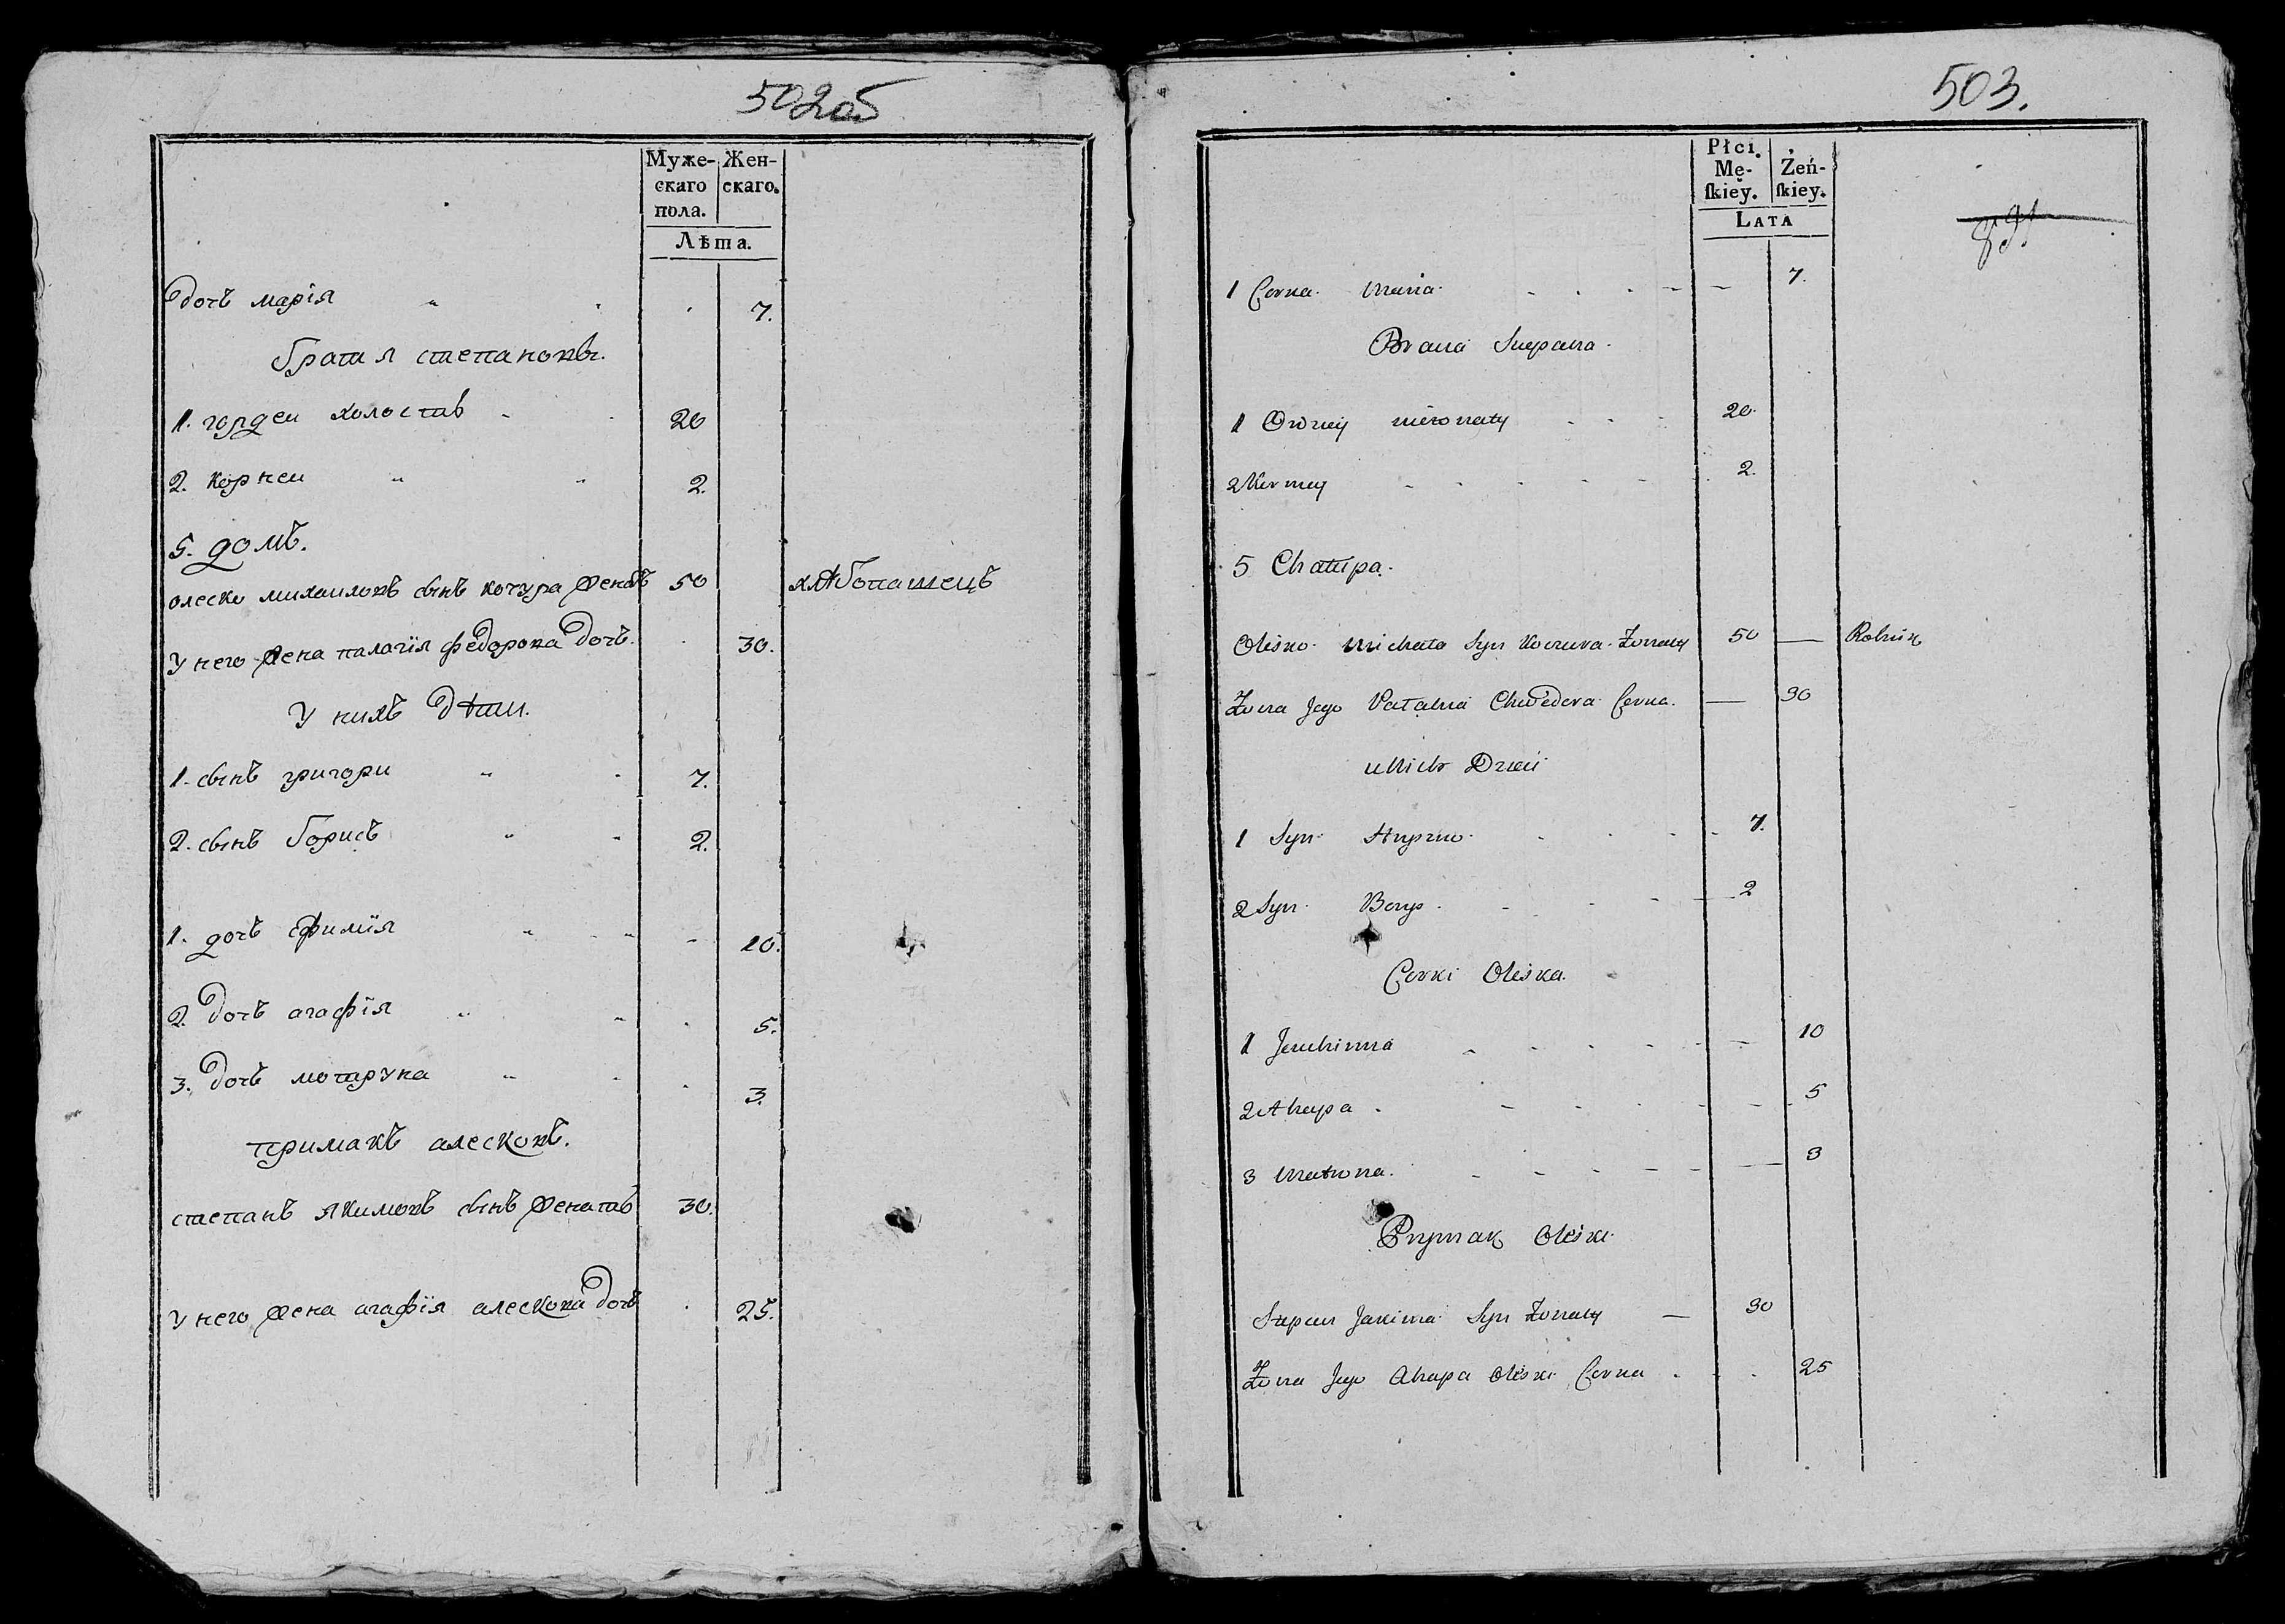 502об
Муже-
скаго
пола.
Жен-
скаго.
Лѣта.
дочь марія 7.
братя степановы.
1. гордеи холостъ 20
2. корнеи 2.
5. домъ.
олеско михаиловъ сынъ кочура женатъ 50 хлѣбопашецъ
у него жена палагія федорова дочь. 30.
У нихъ дѣти.
1. сынъ григори 7.
2. сынъ борисъ 2.
1. дочь єфимія 10.
2. дочь агафїя 5.
3. дочь мотруна 3.
примакъ алесковъ.
степанъ якимовъ сынъ женатъ 30.
у него жена агафїя алескова дочь 25.
503.
Płci
Mę-
skiey.
Żeń-
skiey.
Lata
1 Corka Maria 7.
Bracia Stepana
1 Ordziey nieżonaty 20.
2 Korniey 2.
5 Chałupa.
Olesko Michała Syn Koczura Żonaty 50 Rolnik
Żona Jego Chwedora Corka. 30
u Nich Dzieci
1 Syn Hryzko 7.
2 Syn Borys 2
Corki Oleska.
1 Jeuchimia 10
2 Ahapa 5
3 Matrona. 3
Prymak Oleska
Stepan Jakima Syn Żonaty 30
Żona Jego Ahapa Oleska Corka 25